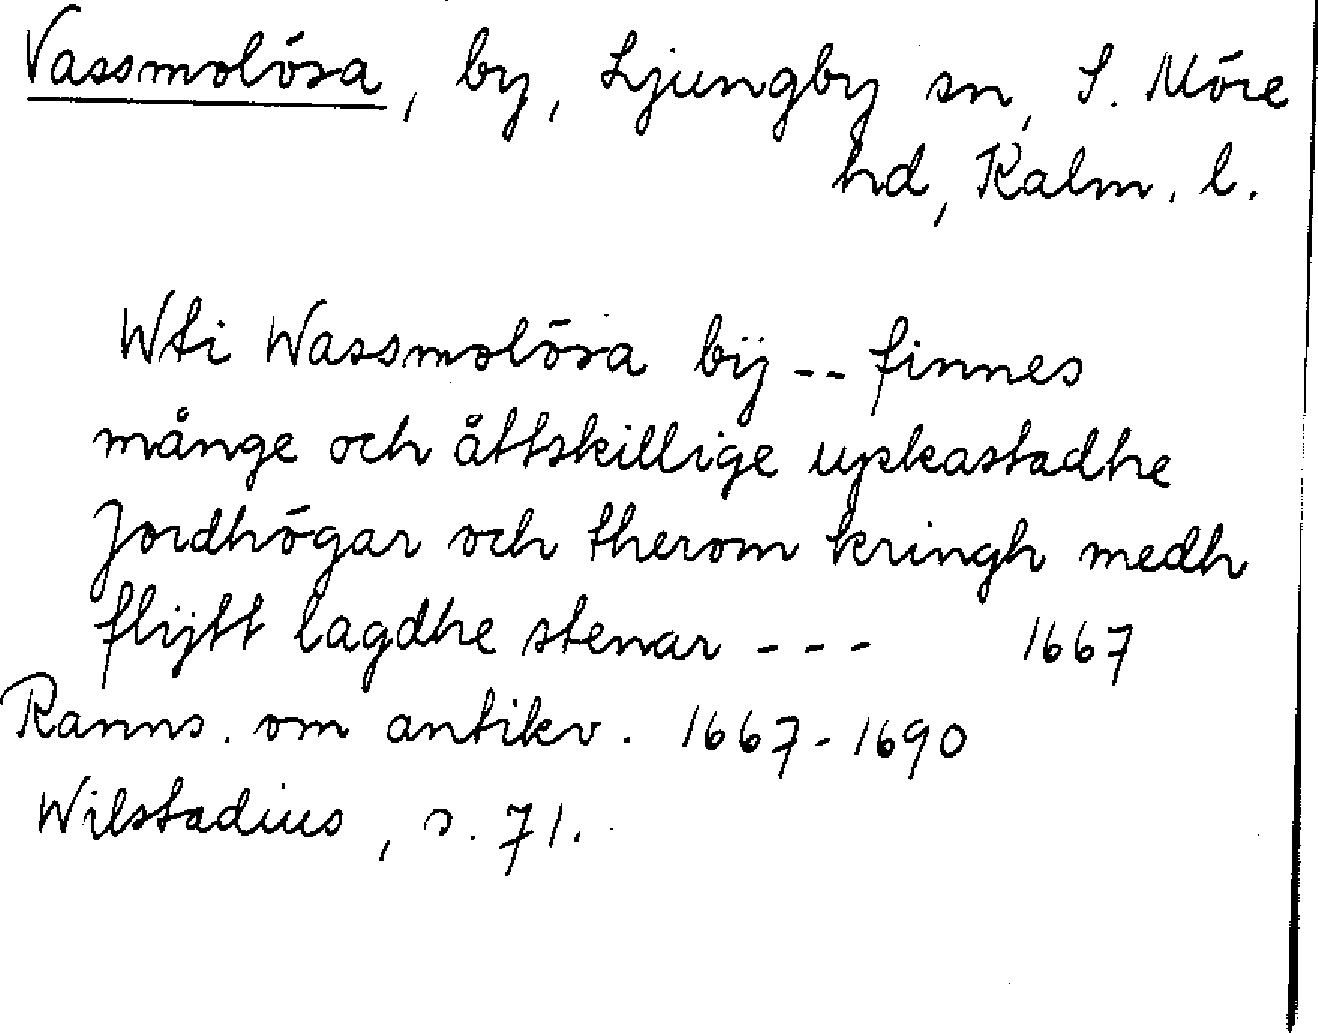 Vassmolösa, by, Ljungby sn, S. Möre
hd, Kalm. l.
Wti Wassmolösa bÿ -- finnes
månge och åttskillige upkastadhe
Jordhögar och therom kringh medh
flijtt lagdhe stenar --- 1667
Ranns. om antikv. 1667-1690
Wilstadius, s. 71.